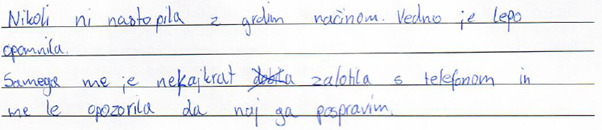 Nikoli ni nastopila z grdim načinom. Vedno je lepo
opomnila.
Samega me je nekajkrat zalotila s telefonom in
me le opozorila da naj ga pospravim.